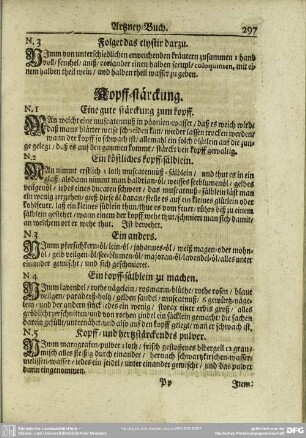 Artzney-Buch. 297
N. 3 Folget das clystir darzu.
Nimm von unterschiedlichen erweichenden kräutern zusammen 1 hand
voll/ fenchel/ aniß/ coriander einen halben scrupl/ coloquinten, mit ei-
nem halben theil wein/ und halben theil wasser zu geben.
Kopff-stärckung.
N. 1 Eine gute stärckung zum kopff.
Man weicht eine muscatennuß in päonienwasser/ daß es weich wird
daß mans blätter weise schneiden kan/ wieder lassen trocken werden/
wann der kopff so schwach ist/ allemahl ein solch scheiblein auf die zun-
ge gelegt/ daß es auf den gaumen komme/ stärckt den kopff gewaltig.
N. 2 Ein köstliches kopff-sälblein.
Man nimmt erstlich 1 loth muscatennuß-sälblein/ und thut es in ein
glaß/ alsdann nimmt man baldrian-öl/ weisses seeblumenöl/ gelbes
veilgenöl/ iedes eines ducaten schwer/ das muscatnuß-sälblein läst man
ein wenig zergehen/ geust diese öl daran/ stelle es auf ein kleines glütlein oder
kohlfeuer/ laß ein kleines süblein thun/ thut es vom feuer/ rührs biß zu einem
sälblein gestehet/ wann einem der kopff wehe thut/ schmiert man sich damit
an welchem ort er wehe thut. Ist bewehrt.
N. 3 Ein anders.
Nimm pfersichkern-öl/ lein-öl/ johannes-öl/ weiß magen- oder mohn-
öl/ gelb veilgen-öl/ seeblumen-öl/ majoran-öl/ lavendel-öl/ alles unter
einander gemischt/ und sich geschmieret.
N 4 Ein kopff-sälblein zu machen.
Nimm lavendel/ rothe nägelein/ rosmarin-blüthe/ rothe rosen/ blaue
veilgen/ paradeisholz/ gelben sandel/ muscatennuß/ 6 gewürtz-näge-
lein/ und der andern stück iedes ein wenig/ storax einer erbis groß/ alles
gröblicht zerschnitten/ und von rothen zindel ein säcklein gemacht/ die sachen
darein gefüllt/ unternehet/ und also auf den kopff gelegt/ wan er schwach ist.
N. 5 Kopff- und hertzstärckendes pulver.
Nimm margrafen-pulver 1 loth/ frisch gestossenes bibergeil 12 gran/
misch alles fleißig durch einander/ hernach schwartzkirschen-wasser/
iedes ein seidel/ unter einander gemischt/ und das pulver
darin eingenommen.
Pp Item: